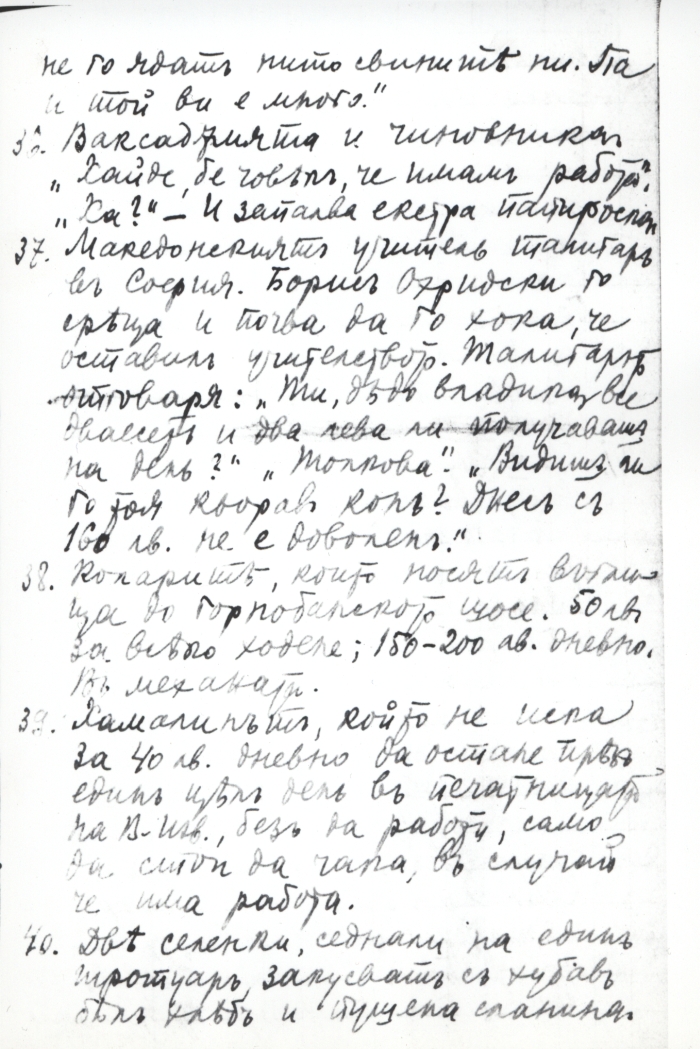 не го ядатъ нито свинитѣ ни. Па
и той ви е много."
36. Ваксаджията и чиновника.
„Хайде, бе човѣкъ, че имамъ работа".
„Ха?" – И запалва екстра папироска
37. Македонскиятъ учитель талигарь
въ София. Борисъ Охридски го
срѣща и почва да го хока, че
оставилъ учителството. Талигарьтъ
отговаря: „Ти, дѣдо владика, все
двадесеть и два лева ли получавашъ
на день?" „Толкова". „Видишъ ли
го тоя кьоравъ конь? Днесъ съ
160 лв. не е доволенъ."
38. Копаритѣ, които носятъ вѫгли-
ща до Горнобанското шосе. 50 лв.
за всѣко ходене; 150–200 лв. дневно.
Въ механата.
39. Хамалинътъ, който не иска
за 40 лв. дневно да остане прѣзъ
единъ цѣлъ день въ печатницата
на В-Изв., безъ да работи, само
да стои да чака, въ случай
че има работа.
40. Двѣ селенки, седнали на единъ
тротуаръ, закусватъ съ хубавъ
бѣлъ хлѣбъ и пушена сланина.